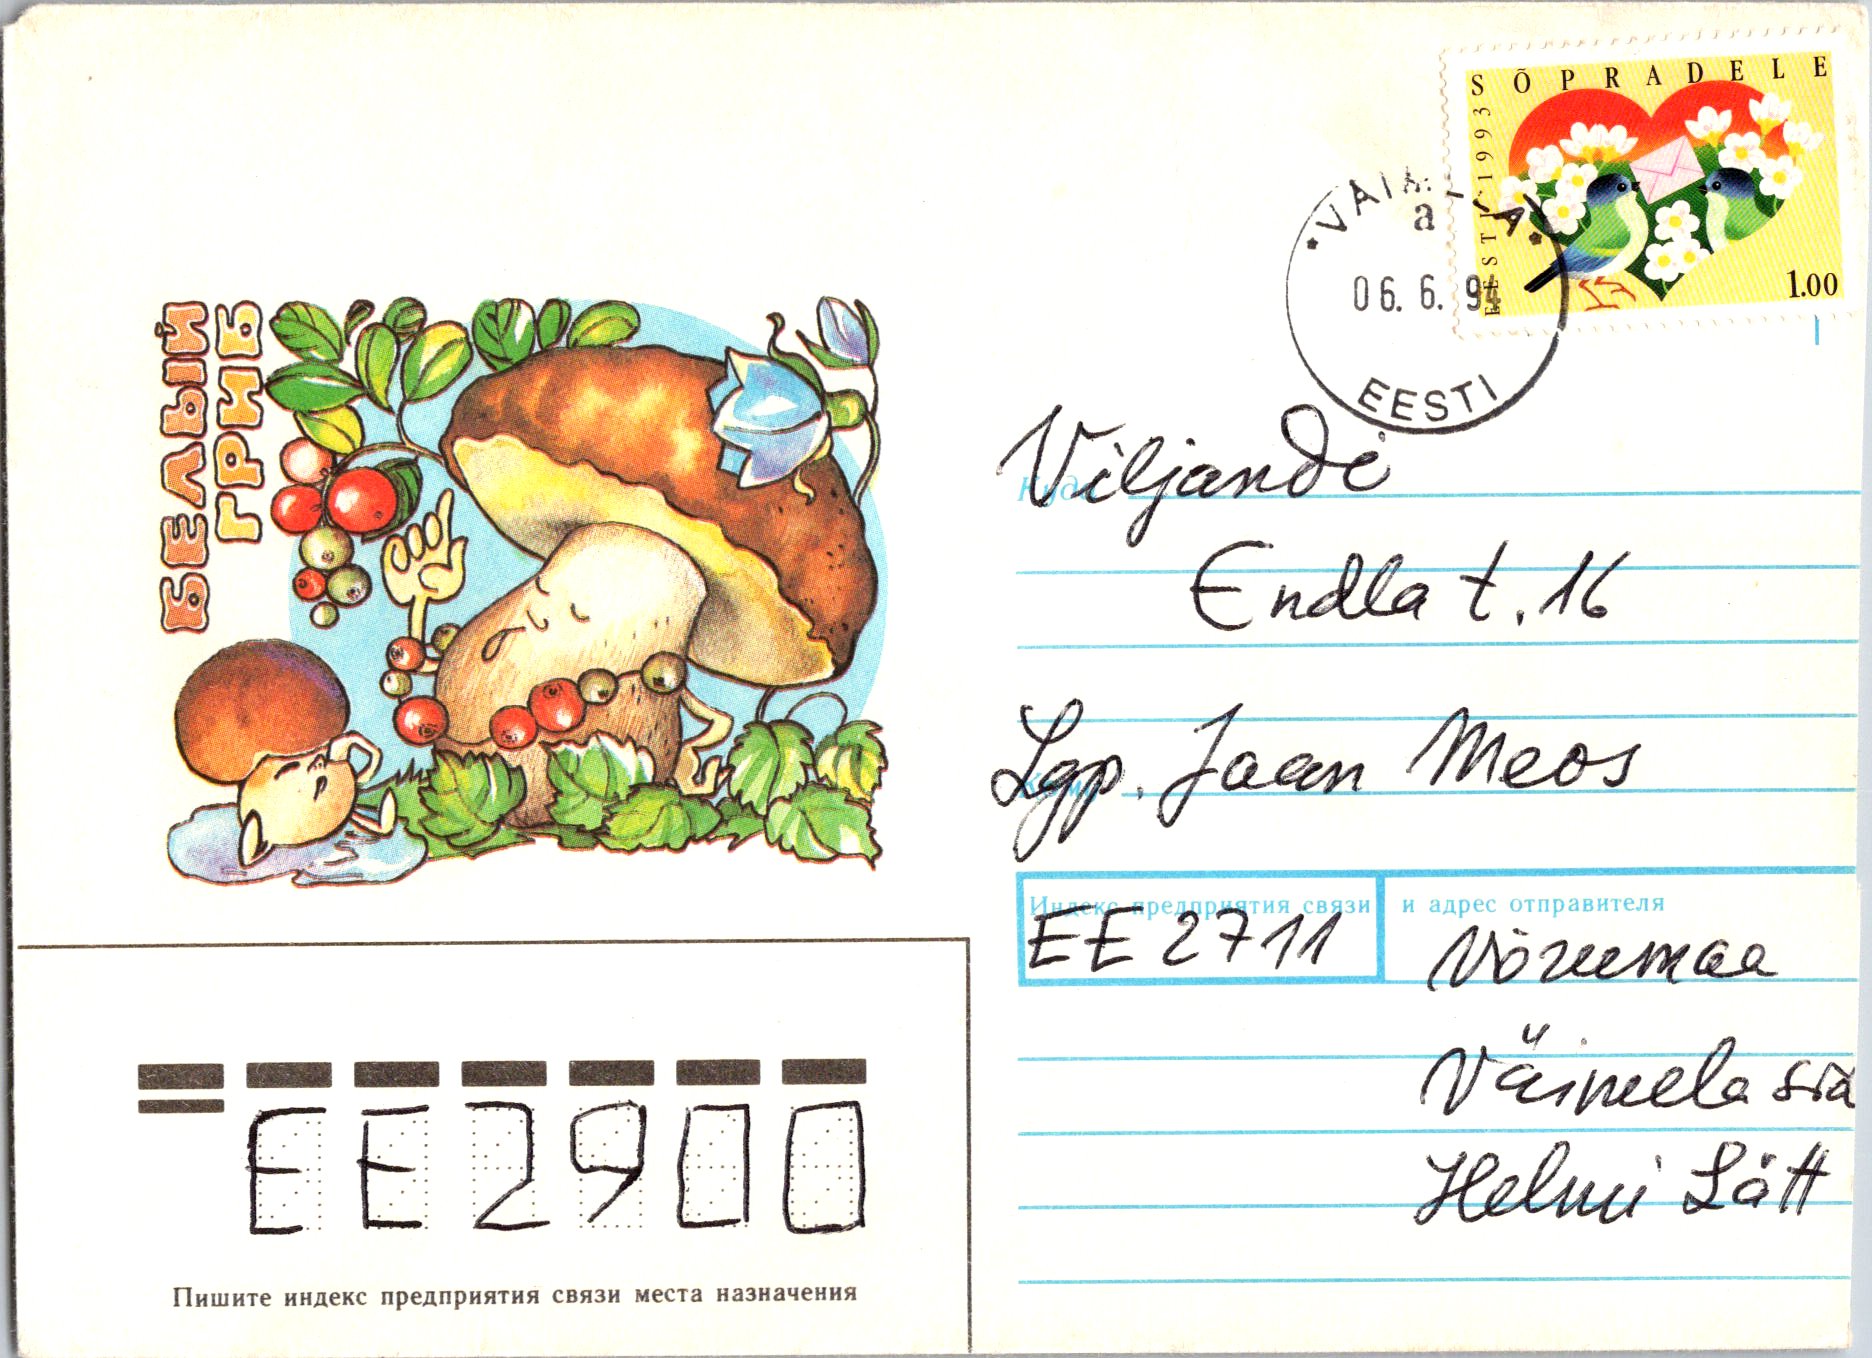 БЕЛЫЙ
ГРИБ
SÕPRADELE
EESTI 1993
1.00
a
06.6.94
EESTI
Viljandi
Endla t. 16
Lgp. Jaan Meos
Индекс предприятия связи и адрес отправителя
EE 2711
Võrumaa
Väimela
Helmi Lätt
EE2900
Пишите индекс предприятия связи места назначения